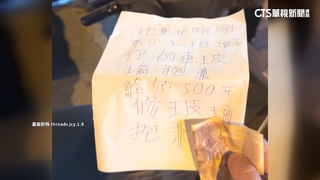 CTS華視新聞
不小心
你的車玻
璃 抱歉
給你500元
修玻璃
抱歉
畫面翻攝:threads jcy.1.6